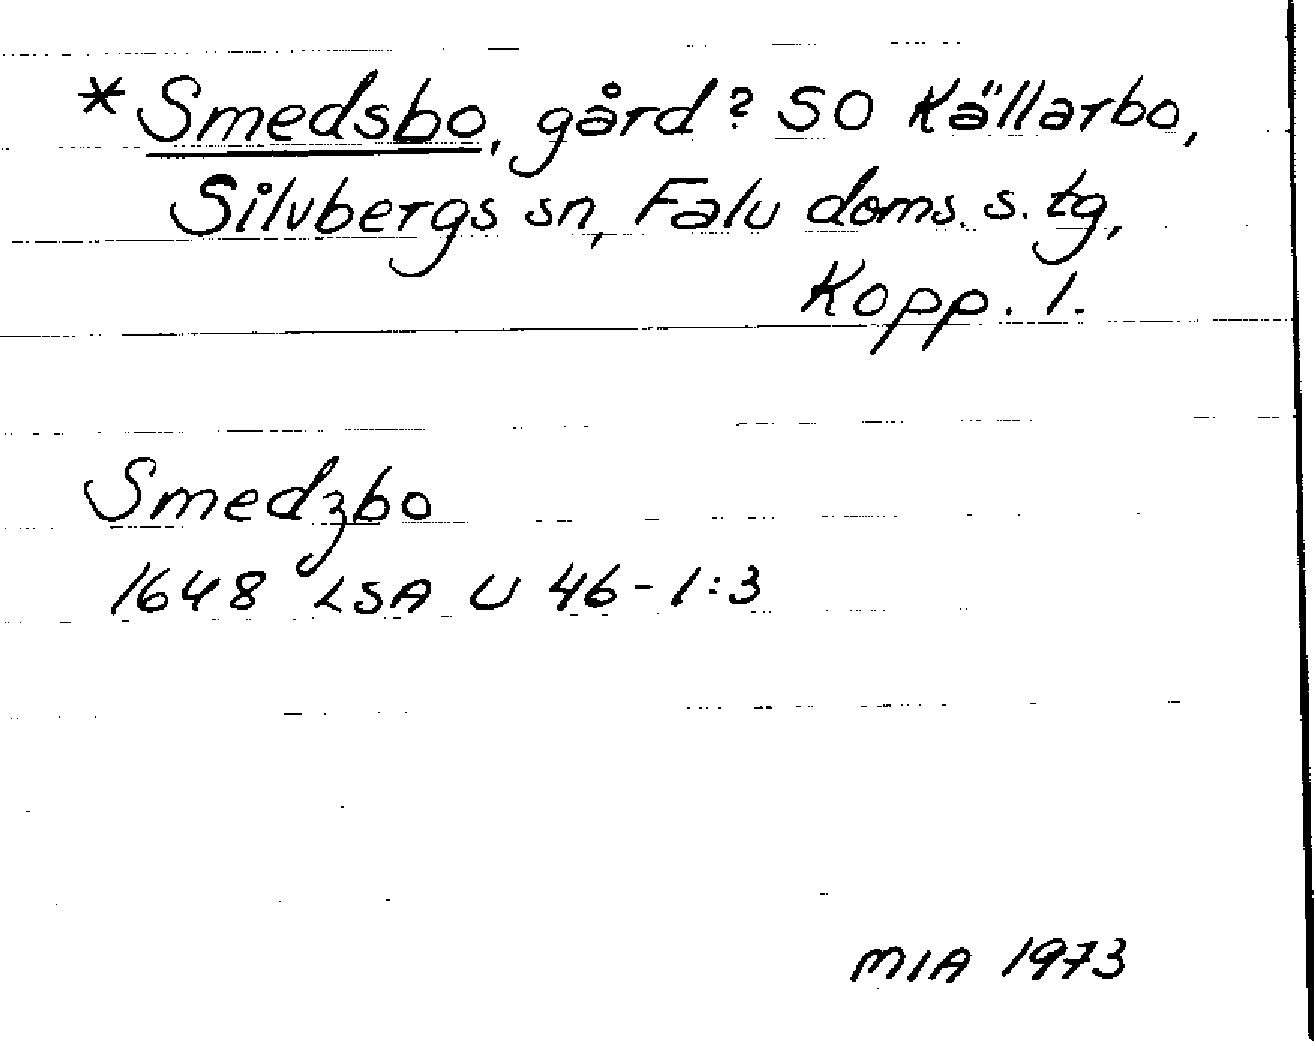 *Smedsbo, gård? SO Källarbo,
Silvbergs sn, Falu doms. s. tg,
Kopp. l.
Smedzbo
1648 LSA U 46-1:3
MIA 1973